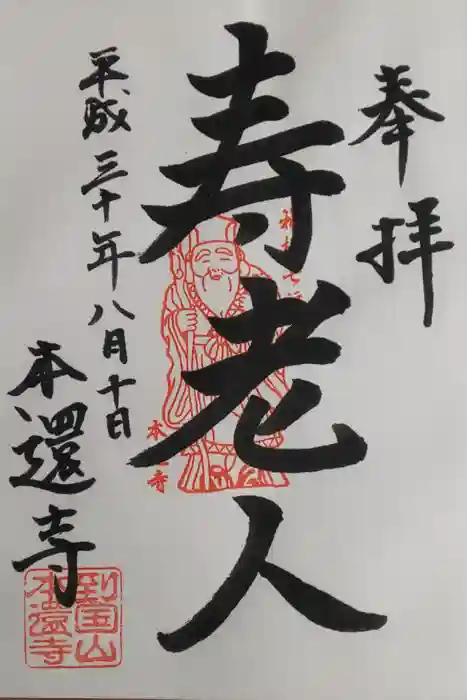 奉拝
寿老人
平成三十年八月十日
本還寺
到国山
本還寺